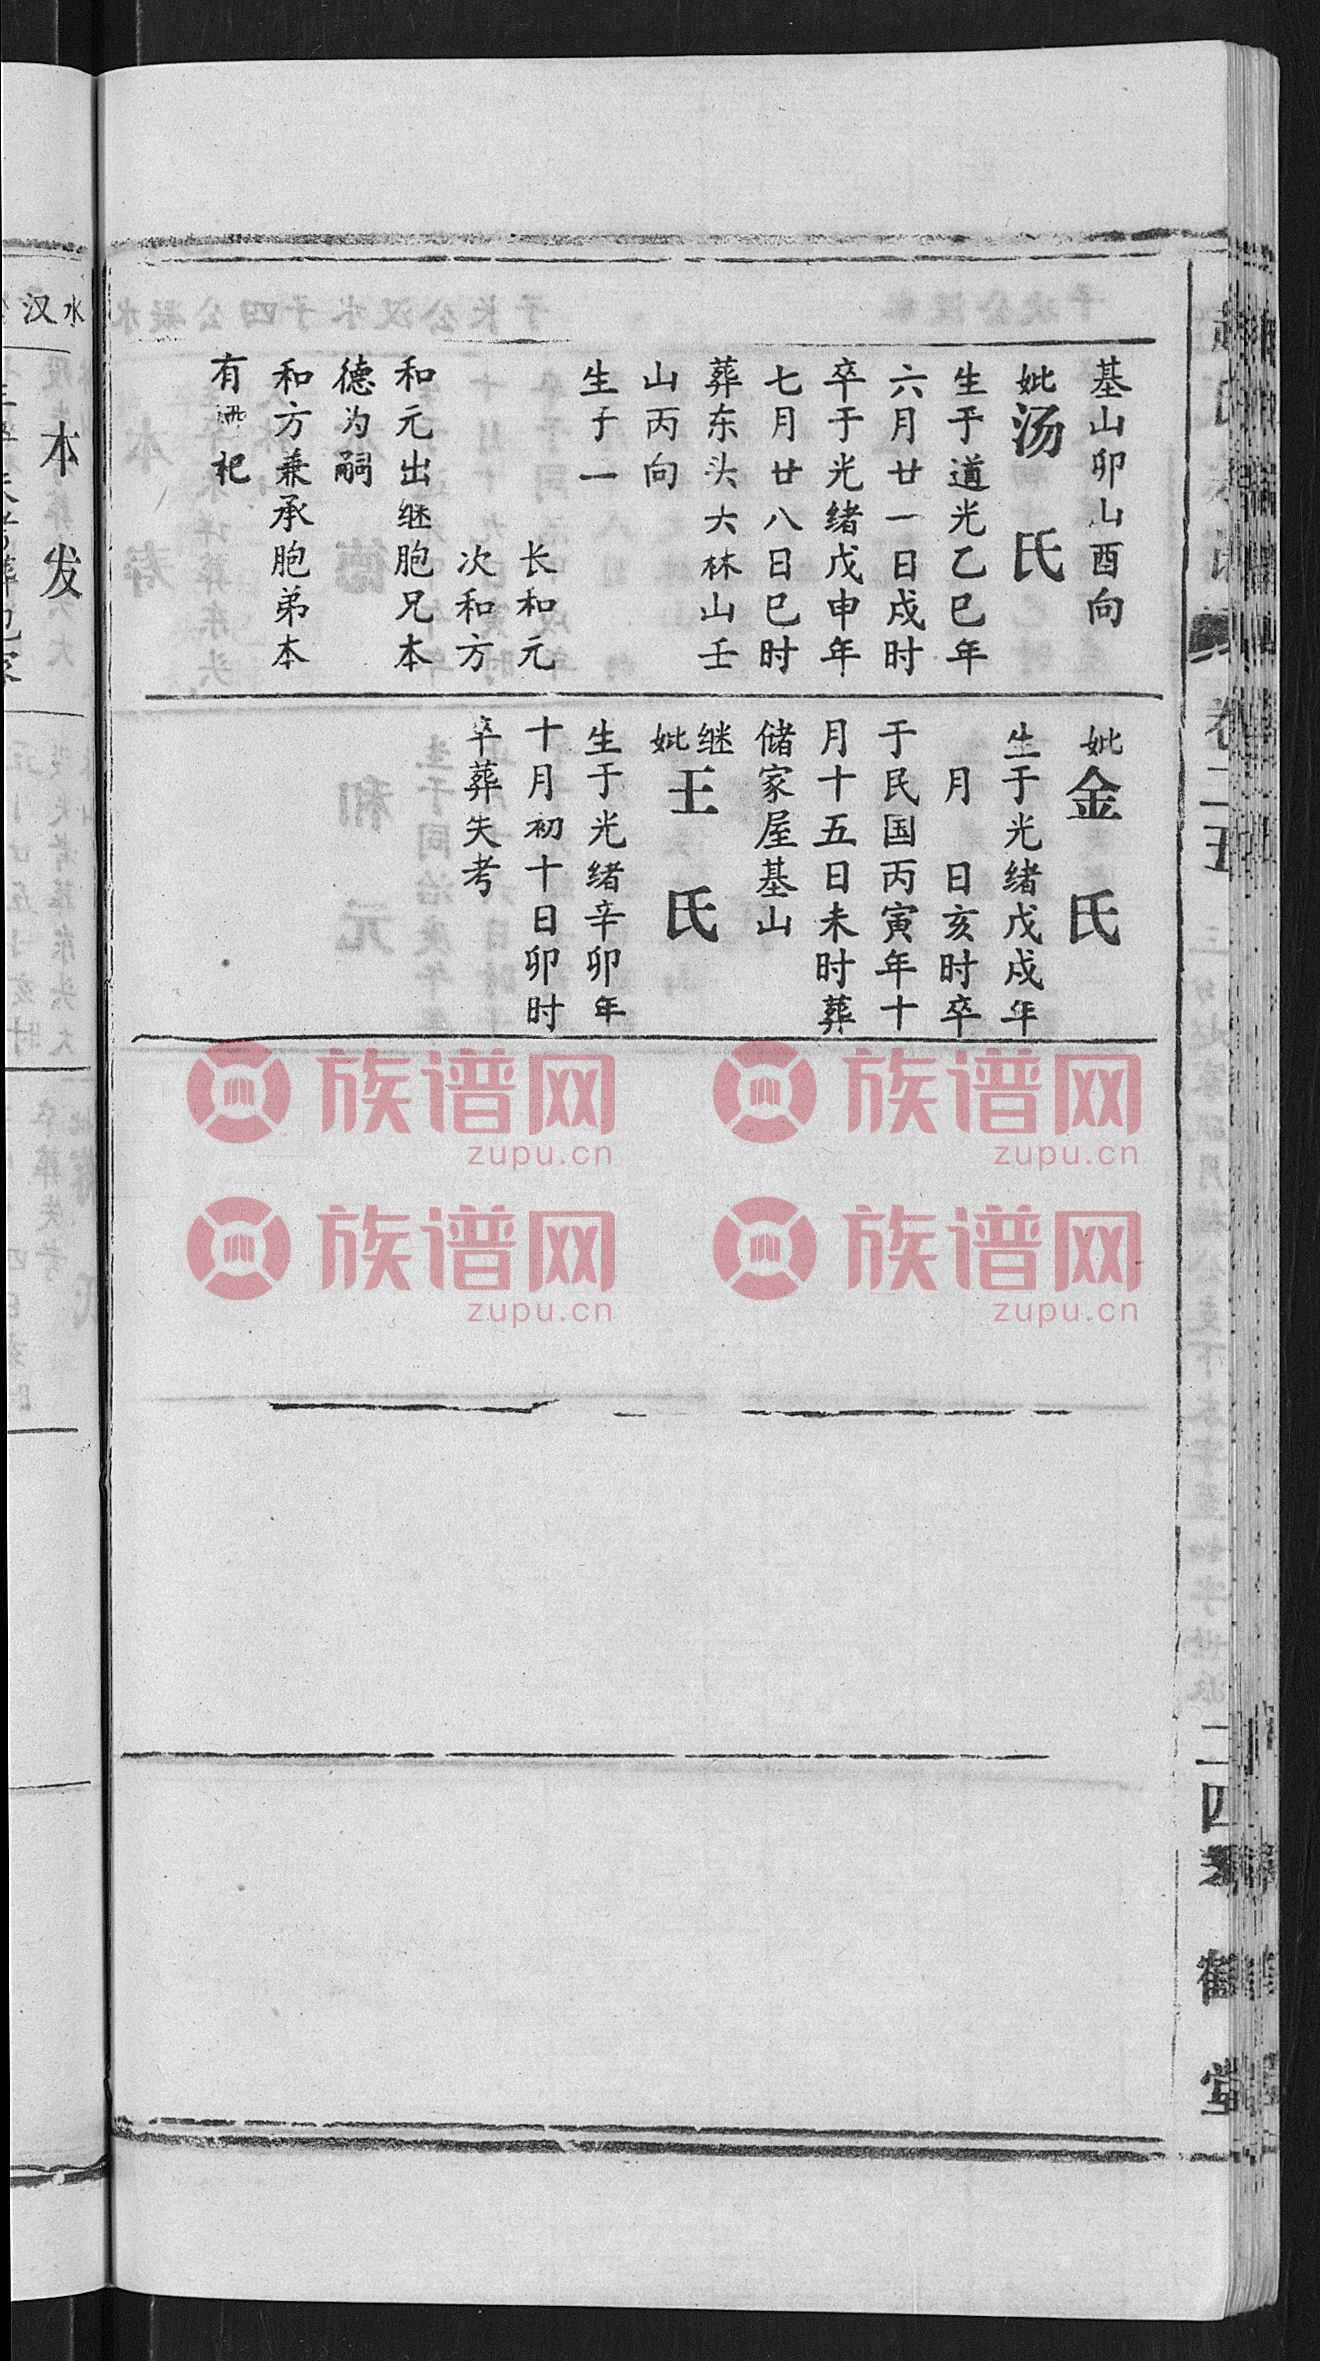 基山卯山酉向
妣汤氏
生于道光乙巳年
六月廿一日戌时
卒于光绪戊申年
七月廿八日巳时
葬东头大林山壬
山丙向
生子一
长和元
次和方
和元出继胞兄本
德为嗣
和方兼承胞弟本
有祧祀
妣金氏
生于光绪戊戌年
月 日亥时卒
于民国丙寅年十
月十五日未时葬
储家屋基山
继妣王氏
生于光绪辛卯年
十月初十日卯时
卒葬失考
卷二五
二四
鹤堂
汉水
本发
族谱网
zupu.cn
族谱网
zupu.cn
族谱网
zupu.cn
族谱网
zupu.cn